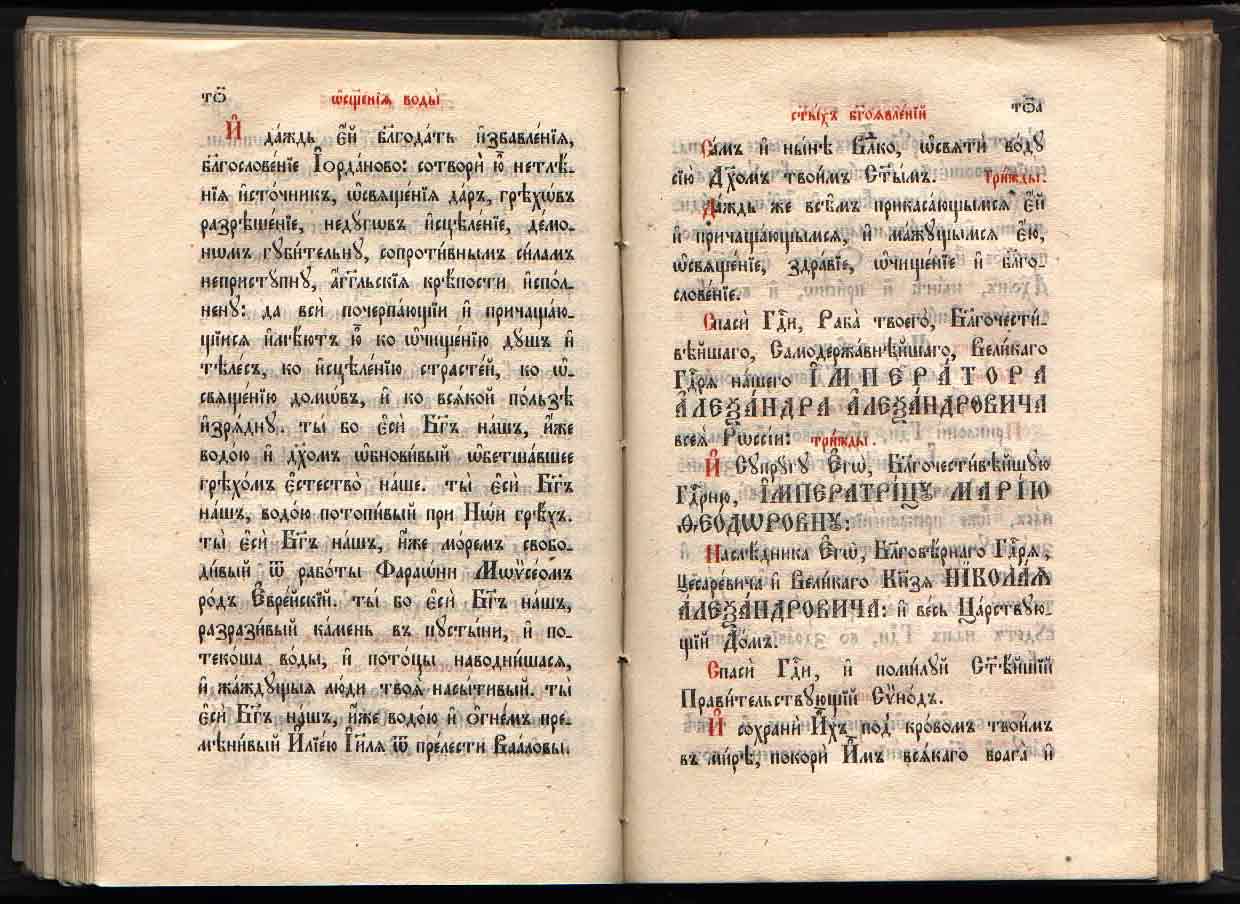 то҃
ѡ҆сщ҃е́нїѧ воды̀
И҆ да́ждь є҆́й бл҃года́ть и҆збавле́нїѧ,
бл҃гослове́нїе І҆ѻрда́ново: сотворѝ ю҆̀ нетлѣ́-
нїѧ и҆сто́чникъ, ѡ҆свѧще́нїѧ да́ръ, грѣхѡ́въ
разрѣше́нїе, неду́гѡвъ и҆сцѣле́нїе, де́мо-
нѡмъ гꙋби́тельнꙋ, сопроти́внымъ си́ламъ
непристꙋ́пнꙋ, а҆́гг҃льскїѧ крѣ́пости и҆спо́л-
ненꙋ: да всѝ почерпа́ющїи и҆ причаща́ю-
щїисѧ и҆мѣ́ютъ ю҆̀ ко ѡ҆чище́нїю дꙋ́шъ и҆
тѣле́съ, ко и҆сцѣле́нїю страсте́й, ко ѡ҆-
свѧще́нїю домѡ́въ, и҆ ко всѧ́кой по́льзѣ
и҆зрѧ́днꙋ. ты́ бо є҆сѝ Бг҃ъ на́шъ, и҆́же
водо́ю и҆ дх҃омъ ѡ҆бнови́вый ѡ҆бетша́вшее
грѣхо́мъ є҆стество̀ на́ше. ты̀ є҆сѝ Бг҃ъ
на́шъ, водо́ю потопи́вый при Нѡ́и грѣ́хъ.
ты̀ є҆сѝ Бг҃ъ на́шъ, и҆́же мо́ремъ свобо-
ди́вый ѿ рабо́ты Фараѡ́ни Мѡѷсе́омъ
ро́дъ Є҆вре́йскїй. ты́ бо є҆сѝ Бг҃ъ на́шъ,
разрази́вый ка́мень въ пꙋсты́ни, и҆ по-
теко́ша во́ды, и҆ пото́цы наводни́шасѧ,
и҆ жа́ждꙋщыѧ лю́ди твоѧ̑ насы́тивый. ты̀
є҆сѝ Бг҃ъ на́шъ, и҆́же водо́ю и҆ ѻ҆гне́мъ пре-
мѣни́вый И҆лїе́ю І҆и҃лѧ ѿ пре́лести Ваа́ловы.
тоа҃
ст҃ы́хъ бг҃оѧвле́нїй
Са́мъ и҆ ны́нѣ Влⷣко, ѡ҆свѧтѝ во́дꙋ
сїю̀ Дх҃омъ твои́мъ Ст҃ы́мъ. Три́жды.
Да́ждь же всѣ́мъ прикаса́ющымсѧ є҆́й
и҆ причаща́ющымсѧ, и҆ ма́жꙋщымсѧ є҆́ю,
ѡ҆свѧще́нїе, здра́вїе, ѡ҆чище́нїе и҆ бл҃го-
слове́нїе.
Спасѝ Гдⷭ҇и, Раба̀ твоего̀, Бл҃гочести-
вѣ́йшаго, Самодержа́внѣйшаго, Вели́каго
Гдⷭ҇рѧ на́шего І҆МПЕРА́ТОРА
А҆ЛЕѮА́НДРА А҆ЛЕѮА́НДРОВИЧА
всеѧ̀ Рѡссі́и: три́жды.
И҆ Сꙋпрꙋ́гꙋ Є҆гѡ̀, Бл҃гочести́вѣйшꙋю
Гдⷭ҇рню, І҆МПЕРАТРІ́ЦꙊ МАРІ́Ю
Ѳ҆ЕО́ДѠРОВНꙊ:
Наслѣ́дника Є҆гѡ̀, Бл҃говѣ́рнаго Гдⷭ҇рѧ,
Цесаре́вича и҆ Вели́каго Кн҃зѧ НІКОЛА́Ѧ
А҆ЛЕѮА́НДРОВИЧА: и҆ ве́сь Ца́рствꙋю-
щїй До́мъ.
Спасѝ Гдⷭ҇и, и҆ поми́лꙋй Ст҃ѣ́йшїй
Прави́тельствꙋющїй Сѷно́дъ.
И҆ сохранѝ И҆̀хъ под̾ кро́вомъ твои́мъ
въ ми́рѣ, покорѝ И҆̀мъ всѧ́каго врага̀ и҆